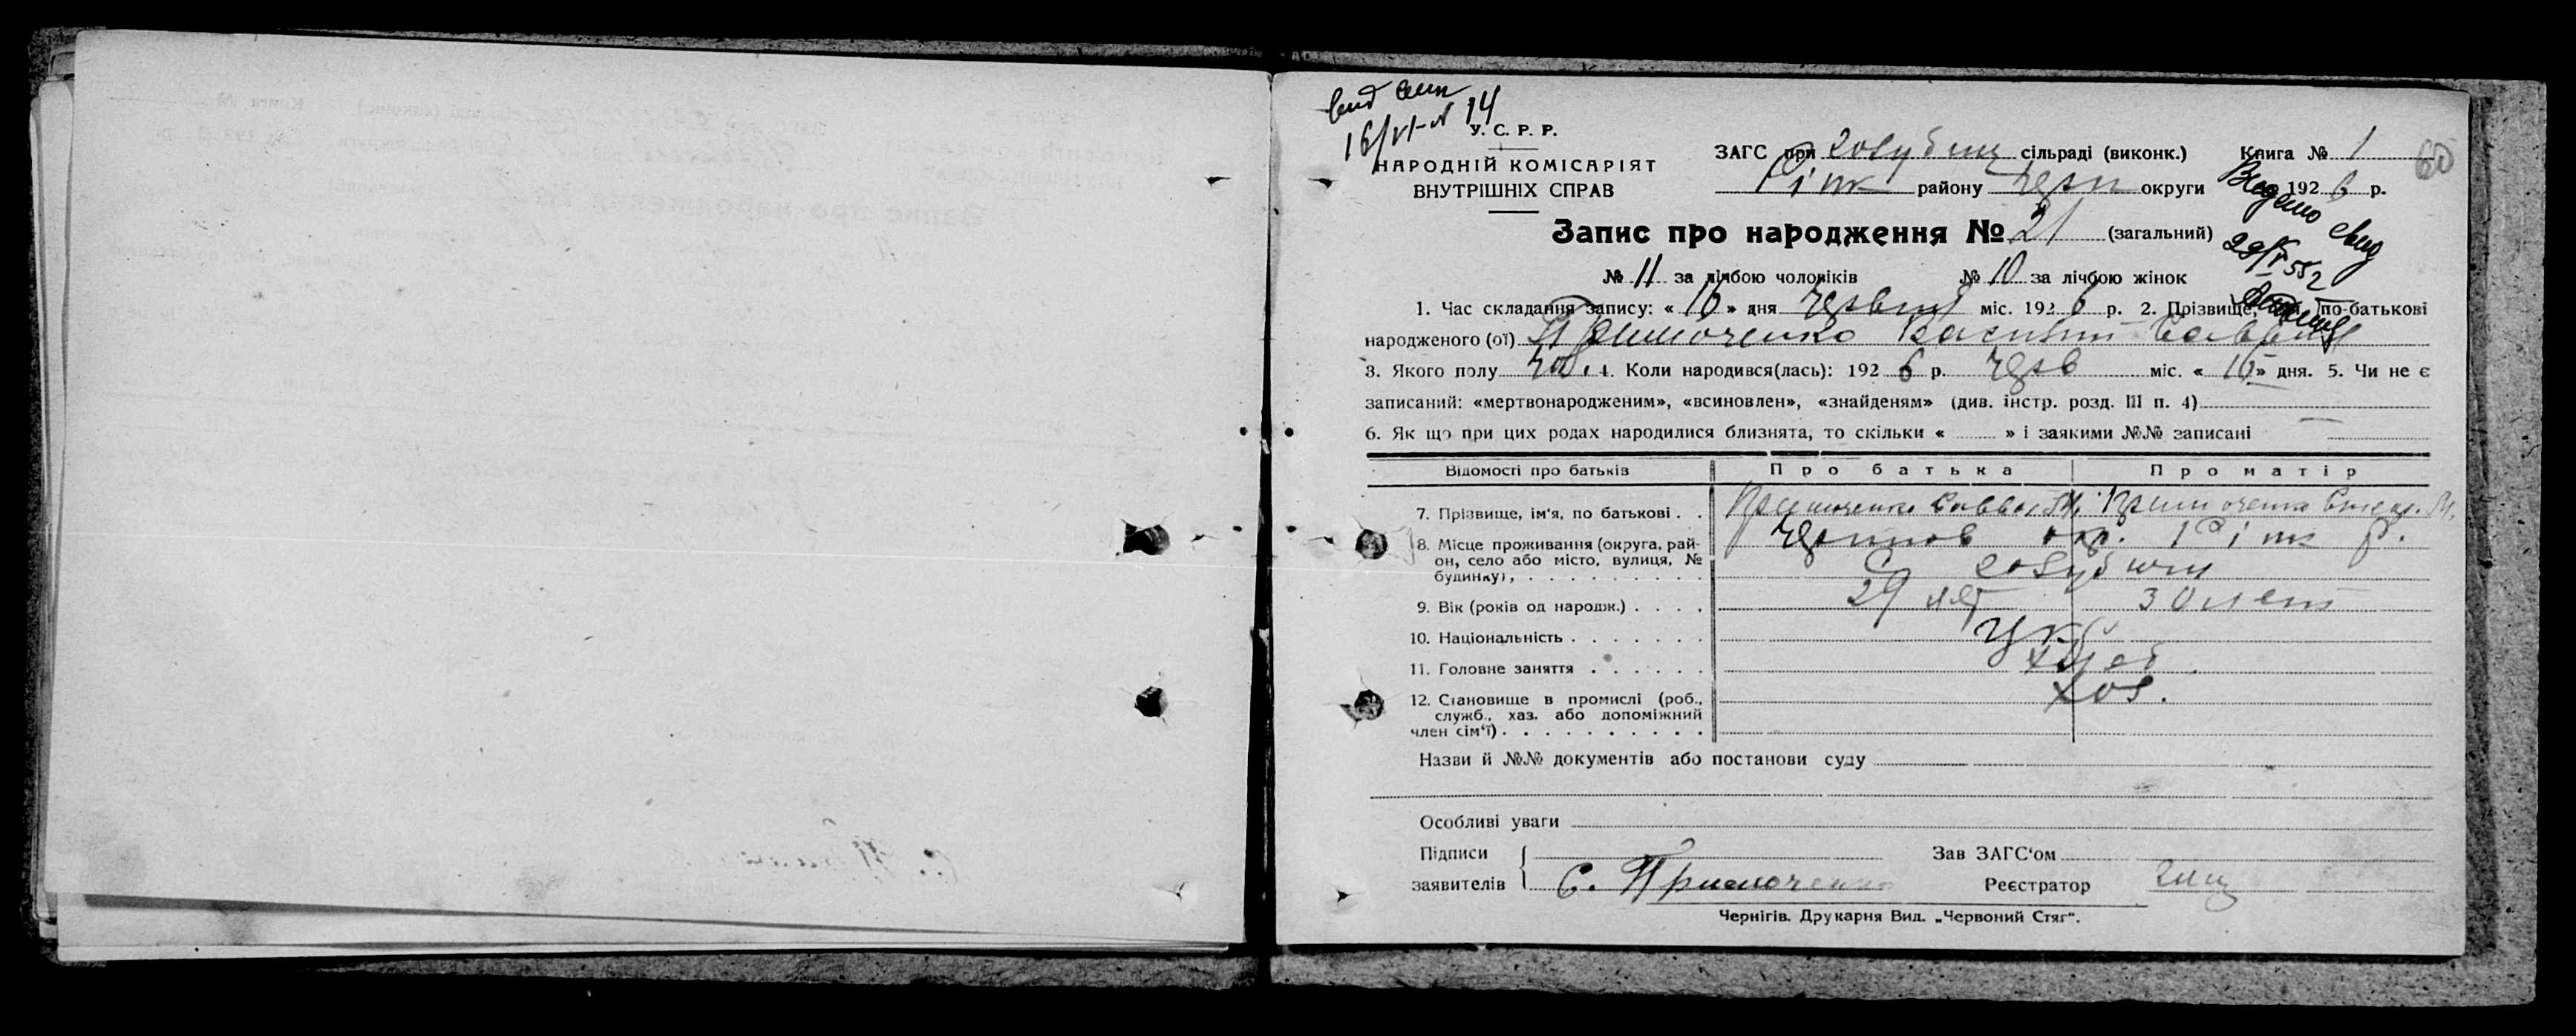 16/VI-№ 14
У. С. Р. Р.
НАРОДНІЙ КОМІСАРІЯТ
ВНУТРІШНІХ СПРАВ
ЗАГС при Голубич сільраді (виконк.) Книга № 1 60
Ріпк району Черн округи 1926 р.
Запис про народження № 21 (загальний)
№ 11 за лічбою чоловіків № 10 за лічбою жінок
1. Час складання запису: «16» дня міс. 1926 р. 2. Прізвище, ім'я, по-батькові
народженого (ої) Примоченко
3. Якого полу Чол. 4. Коли народився(лась): 1926 р. Черв міс. «16» дня. 5. Чи не є
записаний: «мертвонародженим», «всиновлен», «знайденям» (див. інстр. розд. III п. 4)
6. Як що при цих родах народилися близнята, то скільки « » і заякими №№ записані
Відомості про батьків Про батька Про матір
7. Прізвище, ім'я, по батькові . . Примоченко Савва М. Примоченко М.
8. Місце проживання (округа, рай- окр. Ріпк р.
он, село або місто, вулиця, №
будинку), . . . . . . . . . .
9. Вік (років од народж.) . . . . 29 лет 30 лет
10. Національність . . . . . . . Укр
11. Головне заняття . . . . . . Хлеб.
12. Становище в промислі (роб., Хоз.
служб., хаз. або допоміжний
член сім'ї) . . . . . . . . . .
Назви й №№ документів або постанови суду
Особливі уваги
Підписи Зав ЗАГС'ом
заявителів С. Примоченко Реєстратор
Чернігів. Друкарня Вид. „Червоний Стяг“.